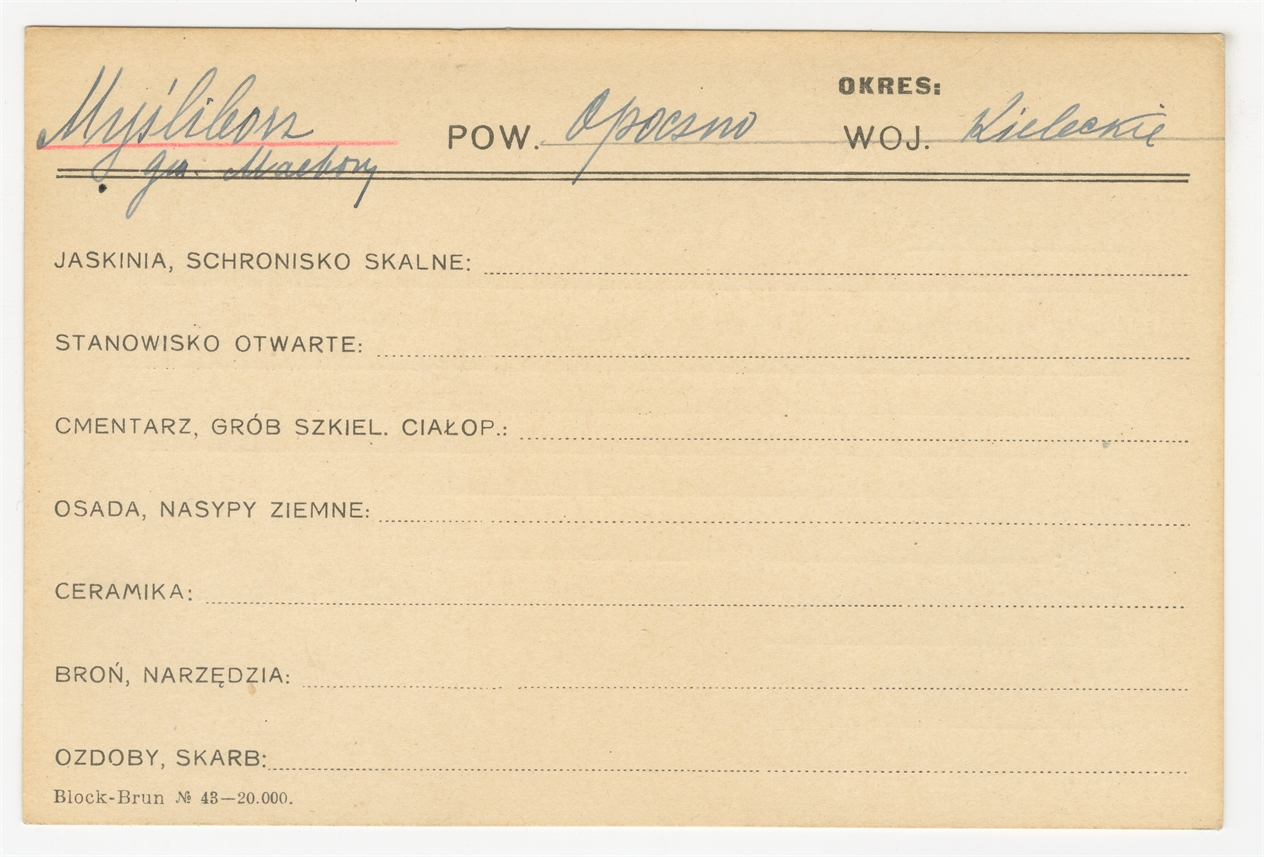 OKRES:
Myślibórz POW. Opoczno WOJ. Kieleckie
gm. Machory
JASKINIA, SCHRONISKO SKALNE:
STANOWISKO OTWARTE:
CMENTARZ, GRÓB SZKIEL. CIAŁOP.:
OSADA, NASYPY ZIEMNE:
CERAMIKA:
BROŃ, NARZĘDZIA:
OZDOBY, SKARB:
Block-Brun № 43—20.000.